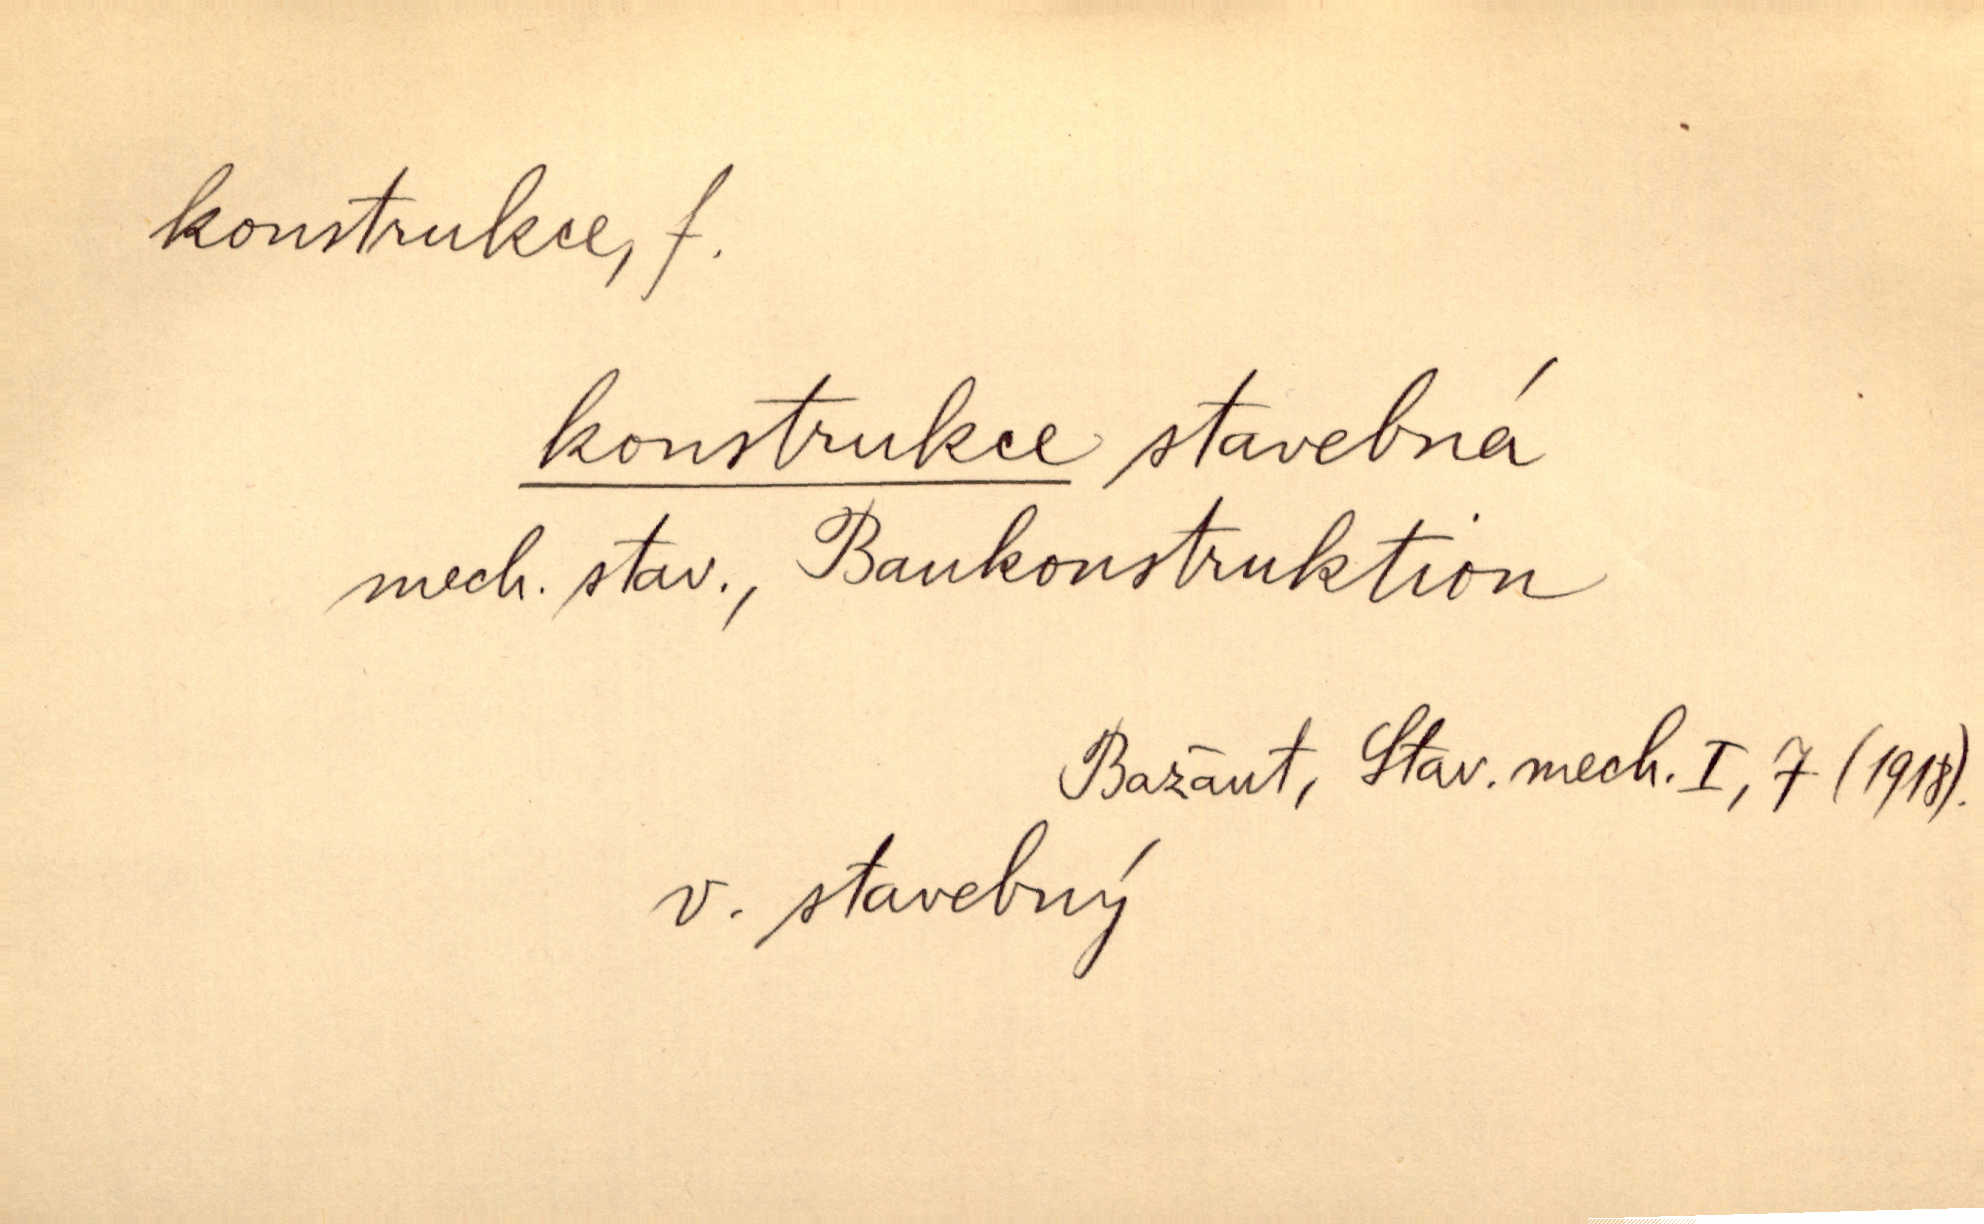 konstrukce, f.
konstrukce stavebná
mech. stav., Baukonstruktion
Bažant, Stav. mech. I, 7 (1918).
v. stavebný